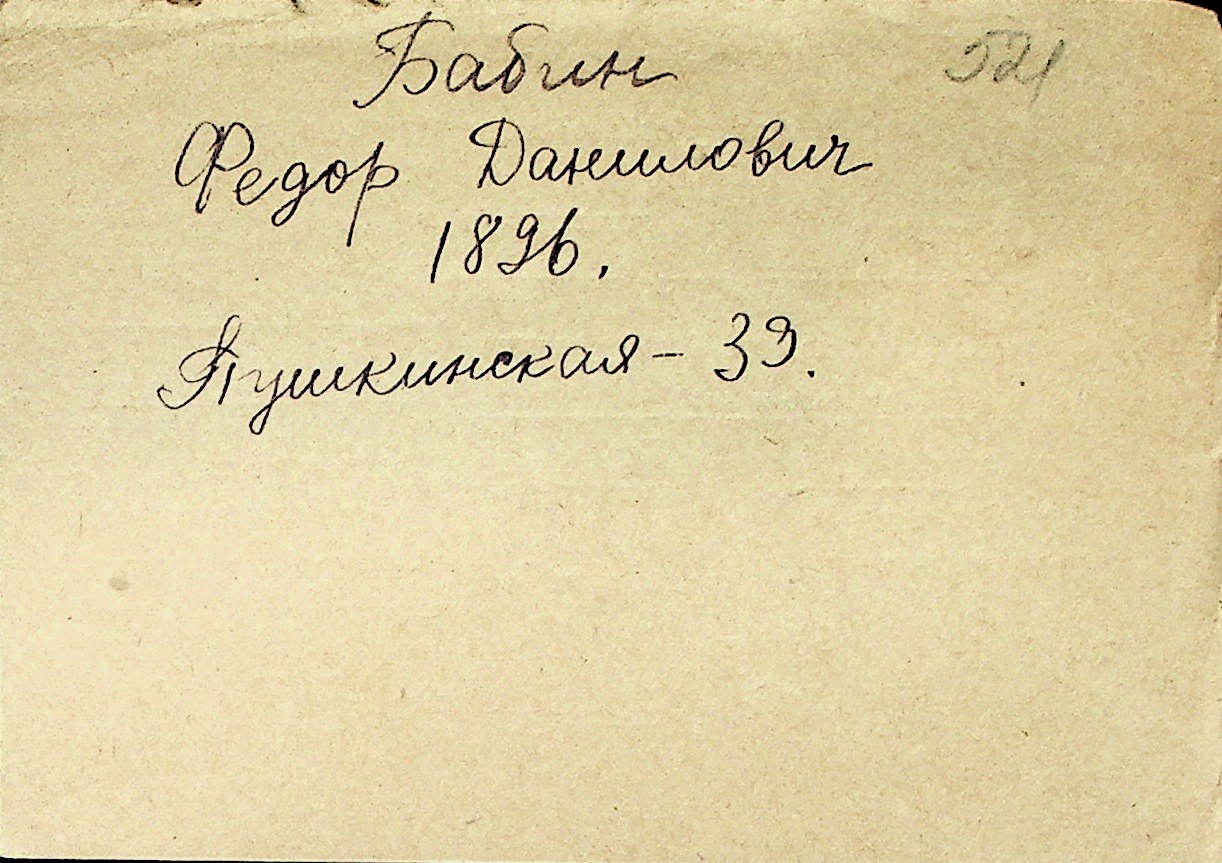 Бабин 521
Федор Данилович
1896.
Пушкинская - 39.